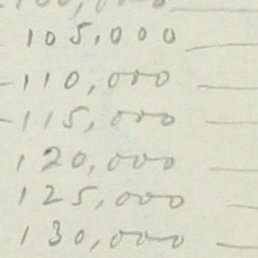 105,000
110,000
115,000
120,000
125,000
130,000